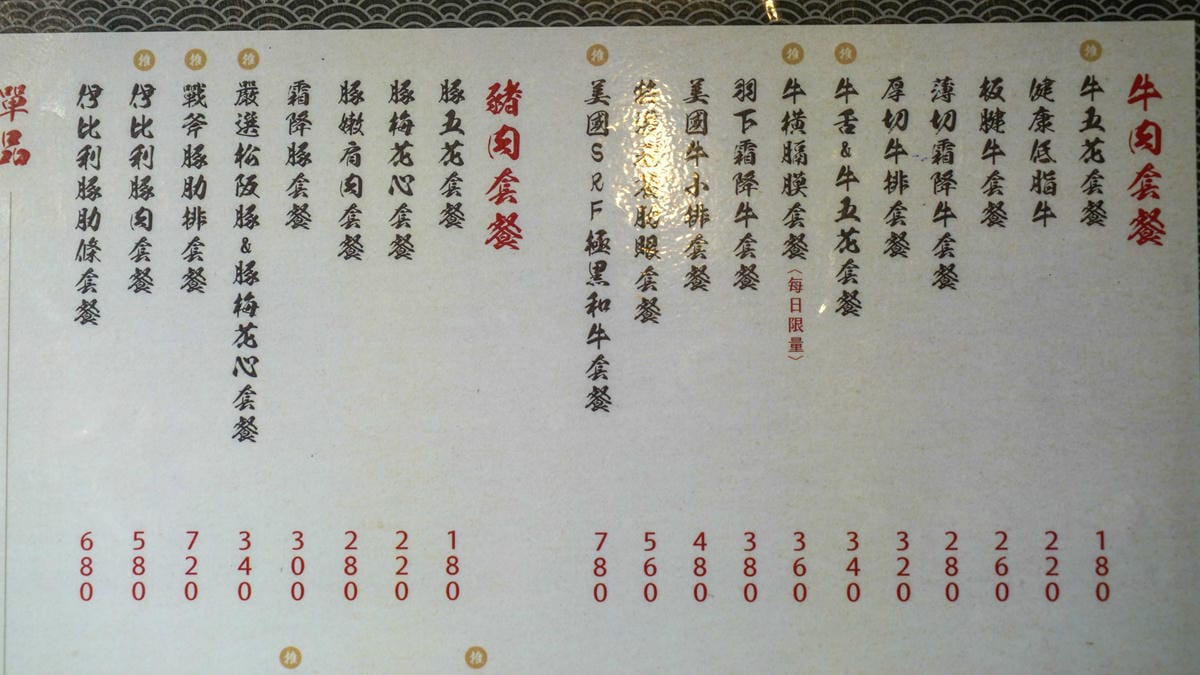 牛肉套餐
推
牛五花套餐
180
健康低脂牛
220
板腱牛套餐
260
薄切霜降牛套餐
280
厚切牛排套餐
320
推
牛舌&牛五花套餐
340
推
牛橫膈膜套餐〈每日限量〉
360
羽下霜降牛套餐
380
美國牛小排套餐
480
肋眼套餐
560
推
美國SRF極黑和牛套餐
780
豬肉套餐
豚五花套餐
180
豚梅花心套餐
220
豚嫩肩肉套餐
280
霜降豚套餐
300
推
嚴選松阪豚&豚梅花心套餐
340
推
戰斧豚肋排套餐
720
推
伊比利豚肉套餐
580
伊比利豚肋條套餐
680
單品
推
推